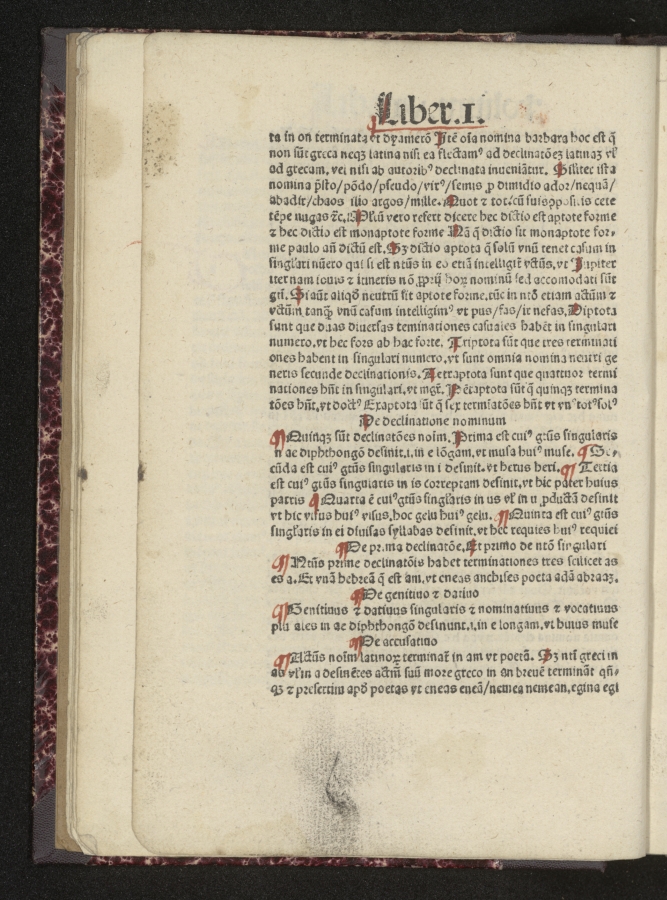 Liber.I.
ta in on terminata et dyamerō Itē oīa nomina barbara hoc est q̄
non sūt greca neqꝫ latina nisi ea flectamꝰ ad declinatōeꝫ latinaꝫ vl̄
ad grecam, vel nisi ab autoribꝰ declinata inueniātur. Silīter ista
nomina p̄sto/pōdo/pseudo/virꝰ/semis ꝓ dimidio ador/nequā/
abadir/chaos ilio argos/mille. Quot ⁊ tot cū suis ꝯpositis cete
tēpe nugas ⁊c̄. Plꝰimū vero refert dicere hec dictio est aptote forme
⁊ hec dictio est monaptote forme Nā q̄ dictio sit monaptote for-
me paulo añ dictū est. Sꝫ dictio aptota q̄ solū vnū tenet casum in
singl̄ari nūero qui si est ntūs in eo etiā intelligit̄ vctūs, vt Iupiter
iter nam iouis ⁊ itineris nō ꝓprij hoꝝ nominū sed accomodati sūt
gtī. Si aūt aliqd̄ neutrū sit aptote forme, tūc in ntō etiam actūm ⁊
vctūm tanqꝫ vnū casum intelligimꝰ vt pus/fas/ir nefas. Diptota
sunt que duas diuersas teminationes casuales habēt in singulari
numero, vt hec fors ab hac forte. Triptota sūt que tres terminati
ones habent in singulari numero, vt sunt omnia nomina neutri ge
neris secunde declinationis. Tetraptota sunt que quattuor termi
nationes hn̄t in singulari, vt mgr̄. Pētaptota sūt q̄ quinqꝫ termina
tōes hn̄t, vt doctꝰ Exaptota sūt q̄ sex termīatōes hn̄t vt vnꝰ totꝰ solꝰ
De declinatione nominum
¶ Quinqꝫ sūt declinatōes noīm. Prima est cuiꝰ gtūs singularis
in ae diphthongō desinit, i, in e lōgam, vt musa huiꝰ muse. ¶ Se-
cūda est cuiꝰ gtūs singularis in i desinit, vt herus heri. ¶ Tertia
est cuiꝰ gtūs singularis in is correptam definit, vt hic pater huius
patris ¶ Quarta ē cuiꝰ gtūs singl̄aris in us vl̄ in u ꝓductā desinit
vt hic visus huiꝰ visus, hoc gelu huiꝰ gelu. ¶ Quinta est cuiꝰ gtūs
singl̄aris in ei diuisas syllabas desinit, vt hec requies huiꝰ requiei
¶ De prima declinatōe, Et primo de ntō singulari
¶ Ntūs prime declinatōis habet terminationes tres scilicet as
es a. Et vnā hebreā q̄ est am, vt eneas anchises poeta adā abraaꝫ.
¶ De genitiuo ⁊ datiuo
¶ Genitiuus ⁊ datiuus singularis ⁊ nominatiuus ⁊ vocatiuus
plurales in ae diphthongō desinunt, i, in e longam, vt huius muse
¶ De accusatiuo
¶ Actūs noīm latinoꝝ terminat̄ in am vt poetā. Sꝫ ntī greci in
as vl̄ in a desinētes actm̄ suū more greco in an breuē termināt qn̄-
qꝫ ⁊ presertim apd̄ poetas vt eneas eneā/nemea nemean, egina egi